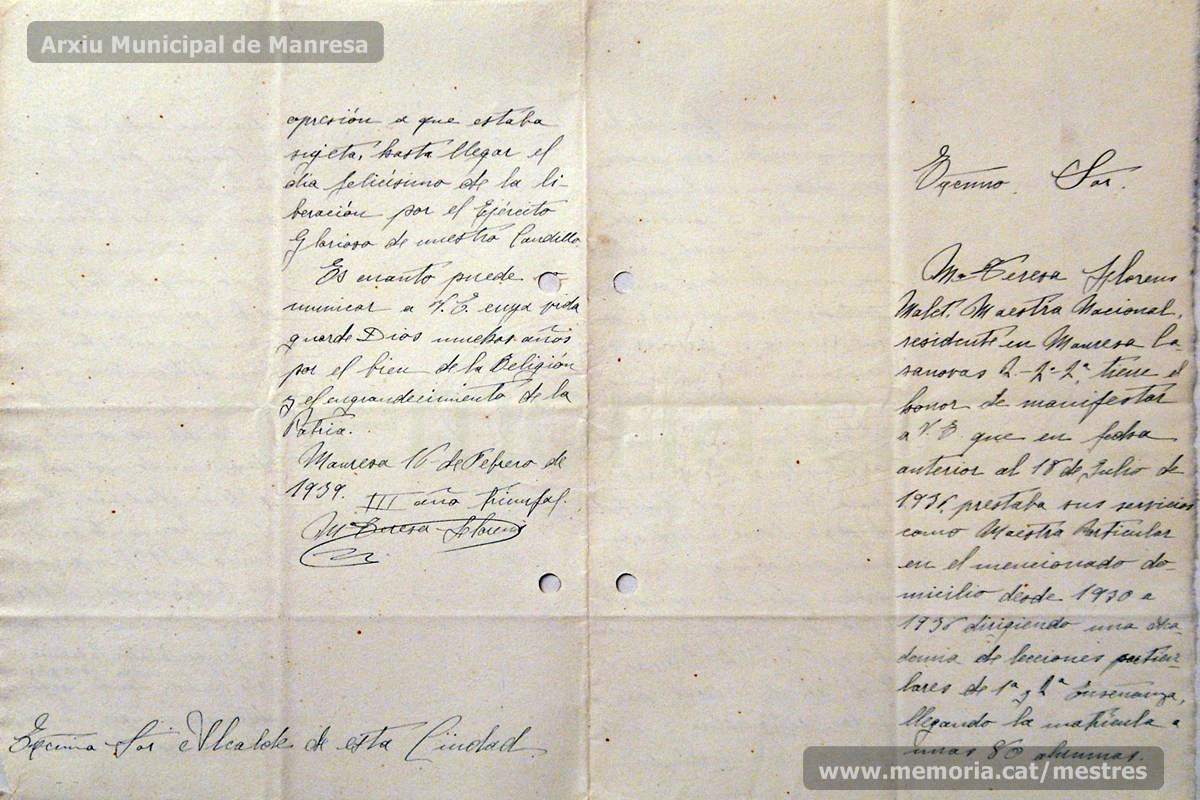 Arxiu Municipal de Manresa
opresión a que estaba
sujeta, hasta llegar el
dia felicísimo de la li-
beración por el Ejército
Glorioso de nuestro Caudillo.
Es cuanto puede co-
municar a V.E. cuya vida
guarde Dios muchos años
por el bien de la Religión
y el engrandecimiento de la
Patria.
Manresa 16 de Febrero de
1939. III año triunfal.
Mª Teresa Llorens
Excmo Sor Alcalde de esta Ciudad
Excmo. Sor.
Mª Teresa Llorens
Malet. Maestra Nacional,
residente en Manresa Ca
sanovas 2.-2º-2ª tiene el
honor de manifestar
a V.E. que en fecha
anterior al 18 de Julio de
1936 prestaba sus servicios
como Maestra Particular
en el mencionado do-
micilio desde 1930 a
1936 dirigiendo una Aca
demia de lecciones particu-
lares de 1ª y 2ª Enseñanza,
llegando la matrícula a
unas 80 alumnas.
www.memoria.cat/mestres